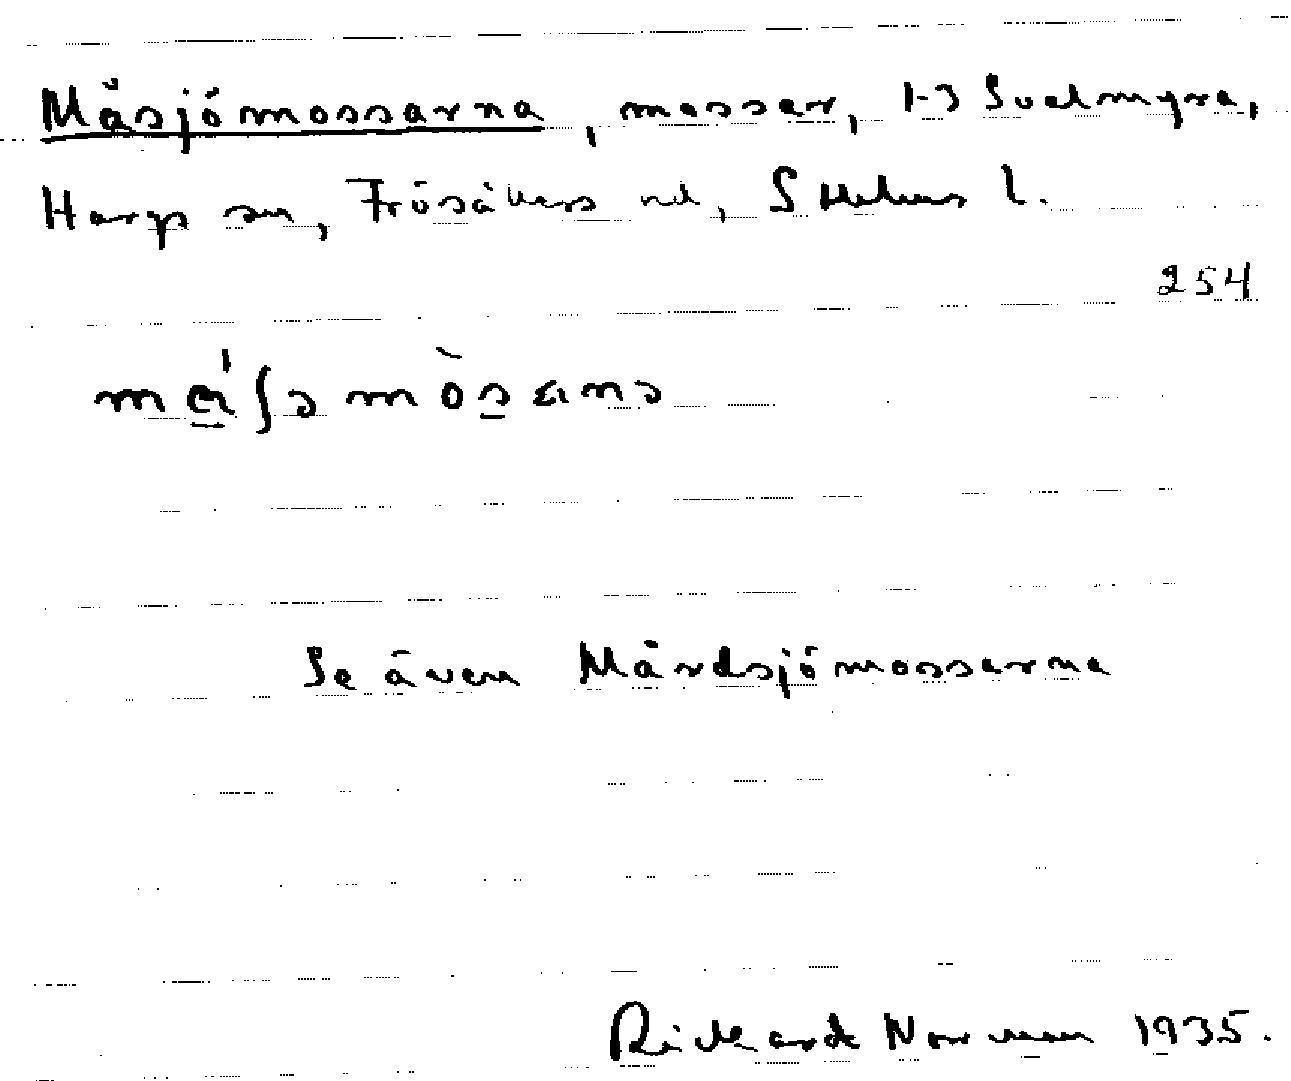 Måsjömossarna, mossar, 1-3 Svelmyra,
Harp sn, Frösåkers hd, Sthlms l.
254
Se även Mårdsjömossarna
Rickard Norman 1935.